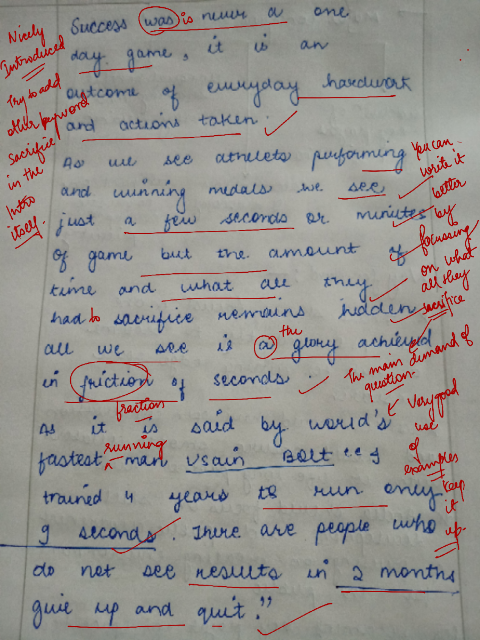 Success was is never a one
day game, it is an
outcome of everyday hardwork
and actions taken.
As we see athelets performing
and winning medals we see
just a few seconds or minutes
of game but the amount of
time and what all they
had to sacrifice remains hidden
all we see is a the glory achieved
in friction of seconds.
fraction
As it is said by world's
fastest running man Usain Bolt "I
trained 4 years to run only
9 seconds. There are people who
do not see results in 2 months
give up and quit."
Nicely
Introduced
Try to add
other keyword
sacrifice
in the
Intro
itself.
You can
write it
better
by
focussing
on what
all they
sacrifice
The main demand of
question.
Very good
use
of
examples
keep
it
up.